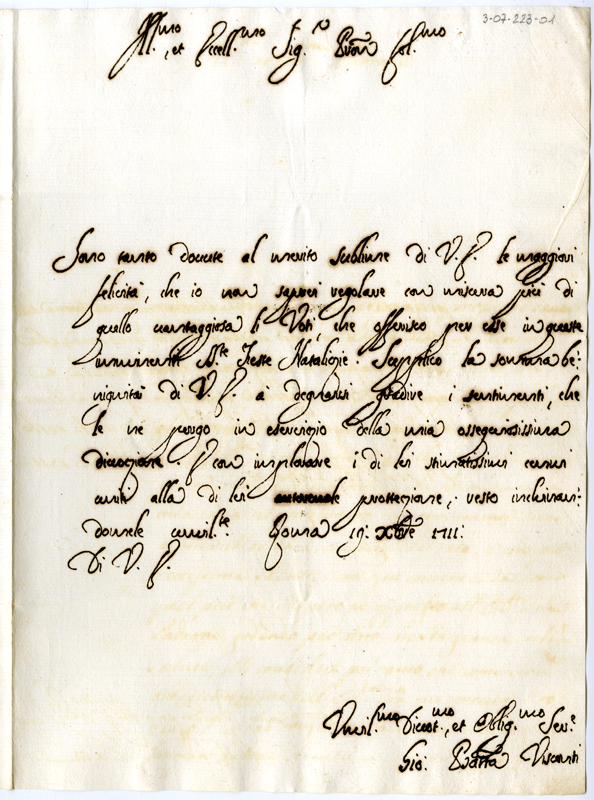 3-07-223-01
Ill.mo, et Eccell.mo Sig.r Pron Col.mo
Sono tanto dovute al merito sublime di V. E. le maggiori
felicità, che io non saprei regolare con misura più di
quello vantaggiosa li Voti, che offerisco per esse in queste
imminenti S.te Feste Natalizie. Supplico la somma be:
nignità di V. E. à degnarsi gradire i sentimenti, che
le ne porgo in esercizio della mia ossequiosissima
divozione. E con implorare i di lei stimatissimi cenni
uniti alla di lei protezione, resto inchinan:
domele umil.te. Roma 19: Xbre 1711:
Di V. E.
Umil.mo Divot.mo, et Oblig.mo Ser.e
Gio: Batta Visconti